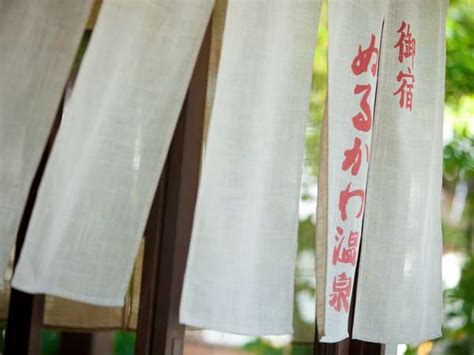 御宿
ぬるかわ温泉